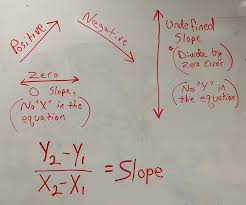 Positive
Negative
Zero
0 Slope,
(No "X" in the
equation)
Undefined
Slope
(Divide by
Zero Error)
(No "Y" in
the equation)
Y₂-Y₁
X₂-X₁
=Slope